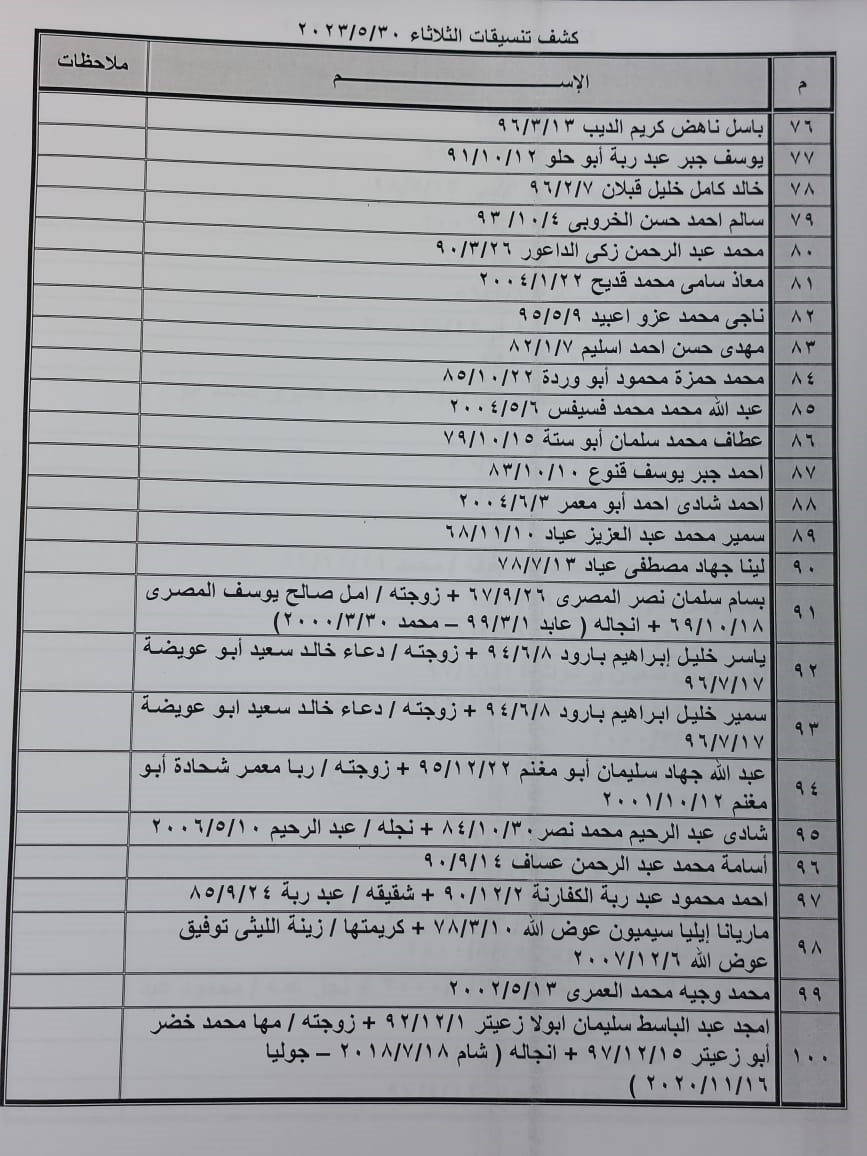 كشف تنسيقات الثلاثاء ٢٠٢٣/٥/٣٠
م الإســـــــم ملاحظات
٧٦ باسل ناهض كريم الديب ٩٦/٣/١٣
٧٧ يوسف جبر عبد ربة أبو حلو ٩١/١٠/١٢
٧٨ خالد كامل خليل قبلان ٩٦/٢/٧
٧٩ سالم احمد حسن الخروبى ٩٣/١٠/٤
٨٠ محمد عبد الرحمن زكى الداعور ٩٠/٣/٢٦
٨١ معاذ سامى محمد قديح ٢٠٠٤/١/٢٢
٨٢ ناجى محمد عزو اعبيد ٩٥/٥/٩
٨٣ مهدى حسن احمد اسليم ٨٢/١/٧
٨٤ محمد حمزة محمود أبو وردة ٨٥/١٠/٢٢
٨٥ عبد الله محمد محمد فسيفس ٢٠٠٤/٥/٦
٨٦ عطاف محمد سلمان أبو ستة ٧٩/١٠/١٥
٨٧ احمد جبر يوسف قنوع ٨٣/١٠/١٠
٨٨ احمد شادى احمد أبو معمر ٢٠٠٤/٦/٣
٨٩ سمير محمد عبد العزيز عياد ٦٨/١١/١٠
٩٠ لينا جهاد مصطفى عياد ٧٨/٧/١٣
٩١ بسام سلمان نصر المصرى ٦٧/٩/٢٦ + زوجته / امل صالح يوسف المصرى
٦٩/١٠/١٨ + انجاله ( عابد ٩٩/٣/١ – محمد ٢٠٠٠/٣/٣٠)
٩٢ ياسر خليل إبراهيم بارود ٩٤/٦/٨ + زوجته / دعاء خالد سعيد أبو عويضة
٩٦/٧/١٧
٩٣ سمير خليل ابراهيم بارود ٩٤/٦/٨ + زوجته / دعاء خالد سعيد ابو عويضة
٩٦/٧/١٧
٩٤ عبد الله جهاد سليمان أبو مغنم ٩٥/١٢/٢٢ + زوجته / ربا معمر شحادة أبو
مغنم ٢٠٠١/١٠/١٢
٩٥ شادى عبد الرحيم محمد نصر ٨٤/١٠/٣٠ + نجله / عبد الرحيم ٢٠٠٦/٥/١٠
٩٦ أسامة محمد عبد الرحمن عساف ٩٠/٩/١٤
٩٧ احمد محمود عبد ربة الكفارنة ٩٠/١٢/٢ + شقيقه / عبد ربة ٨٥/٩/٢٤
٩٨ ماريانا إيليا سيميون عوض الله ٧٨/٣/١٠ + كريمتها / زينة الليثى توفيق
عوض الله ٢٠٠٧/١٢/٦
٩٩ محمد وجيه محمد العمرى ٢٠٠٢/٥/١٣
١٠٠ امجد عبد الباسط سليمان ابولا زعيتر ٩٢/١٢/١ + زوجته / مها محمد خضر
أبو زعيتر ٩٧/١٢/١٥ + انجاله ( شام ٢٠١٨/٧/١٨ – جوليا
٢٠٢٠/١١/١٦ )